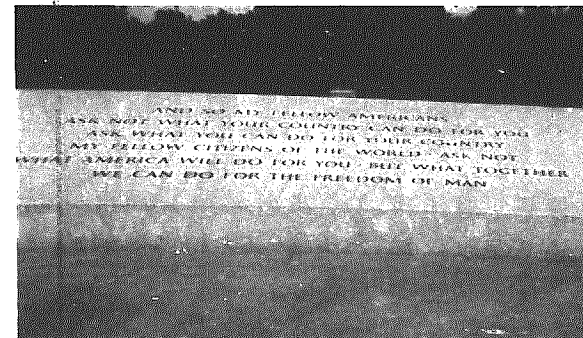 AND SO MY FELLOW AMERICANS
ASK NOT WHAT YOUR COUNTRY CAN DO FOR YOU
ASK WHAT YOU CAN DO FOR YOUR COUNTRY
MY FELLOW CITIZENS OF THE WORLD ASK NOT
WHAT AMERICA WILL DO FOR YOU BUT WHAT TOGETHER
WE CAN DO FOR THE FREEDOM OF MAN